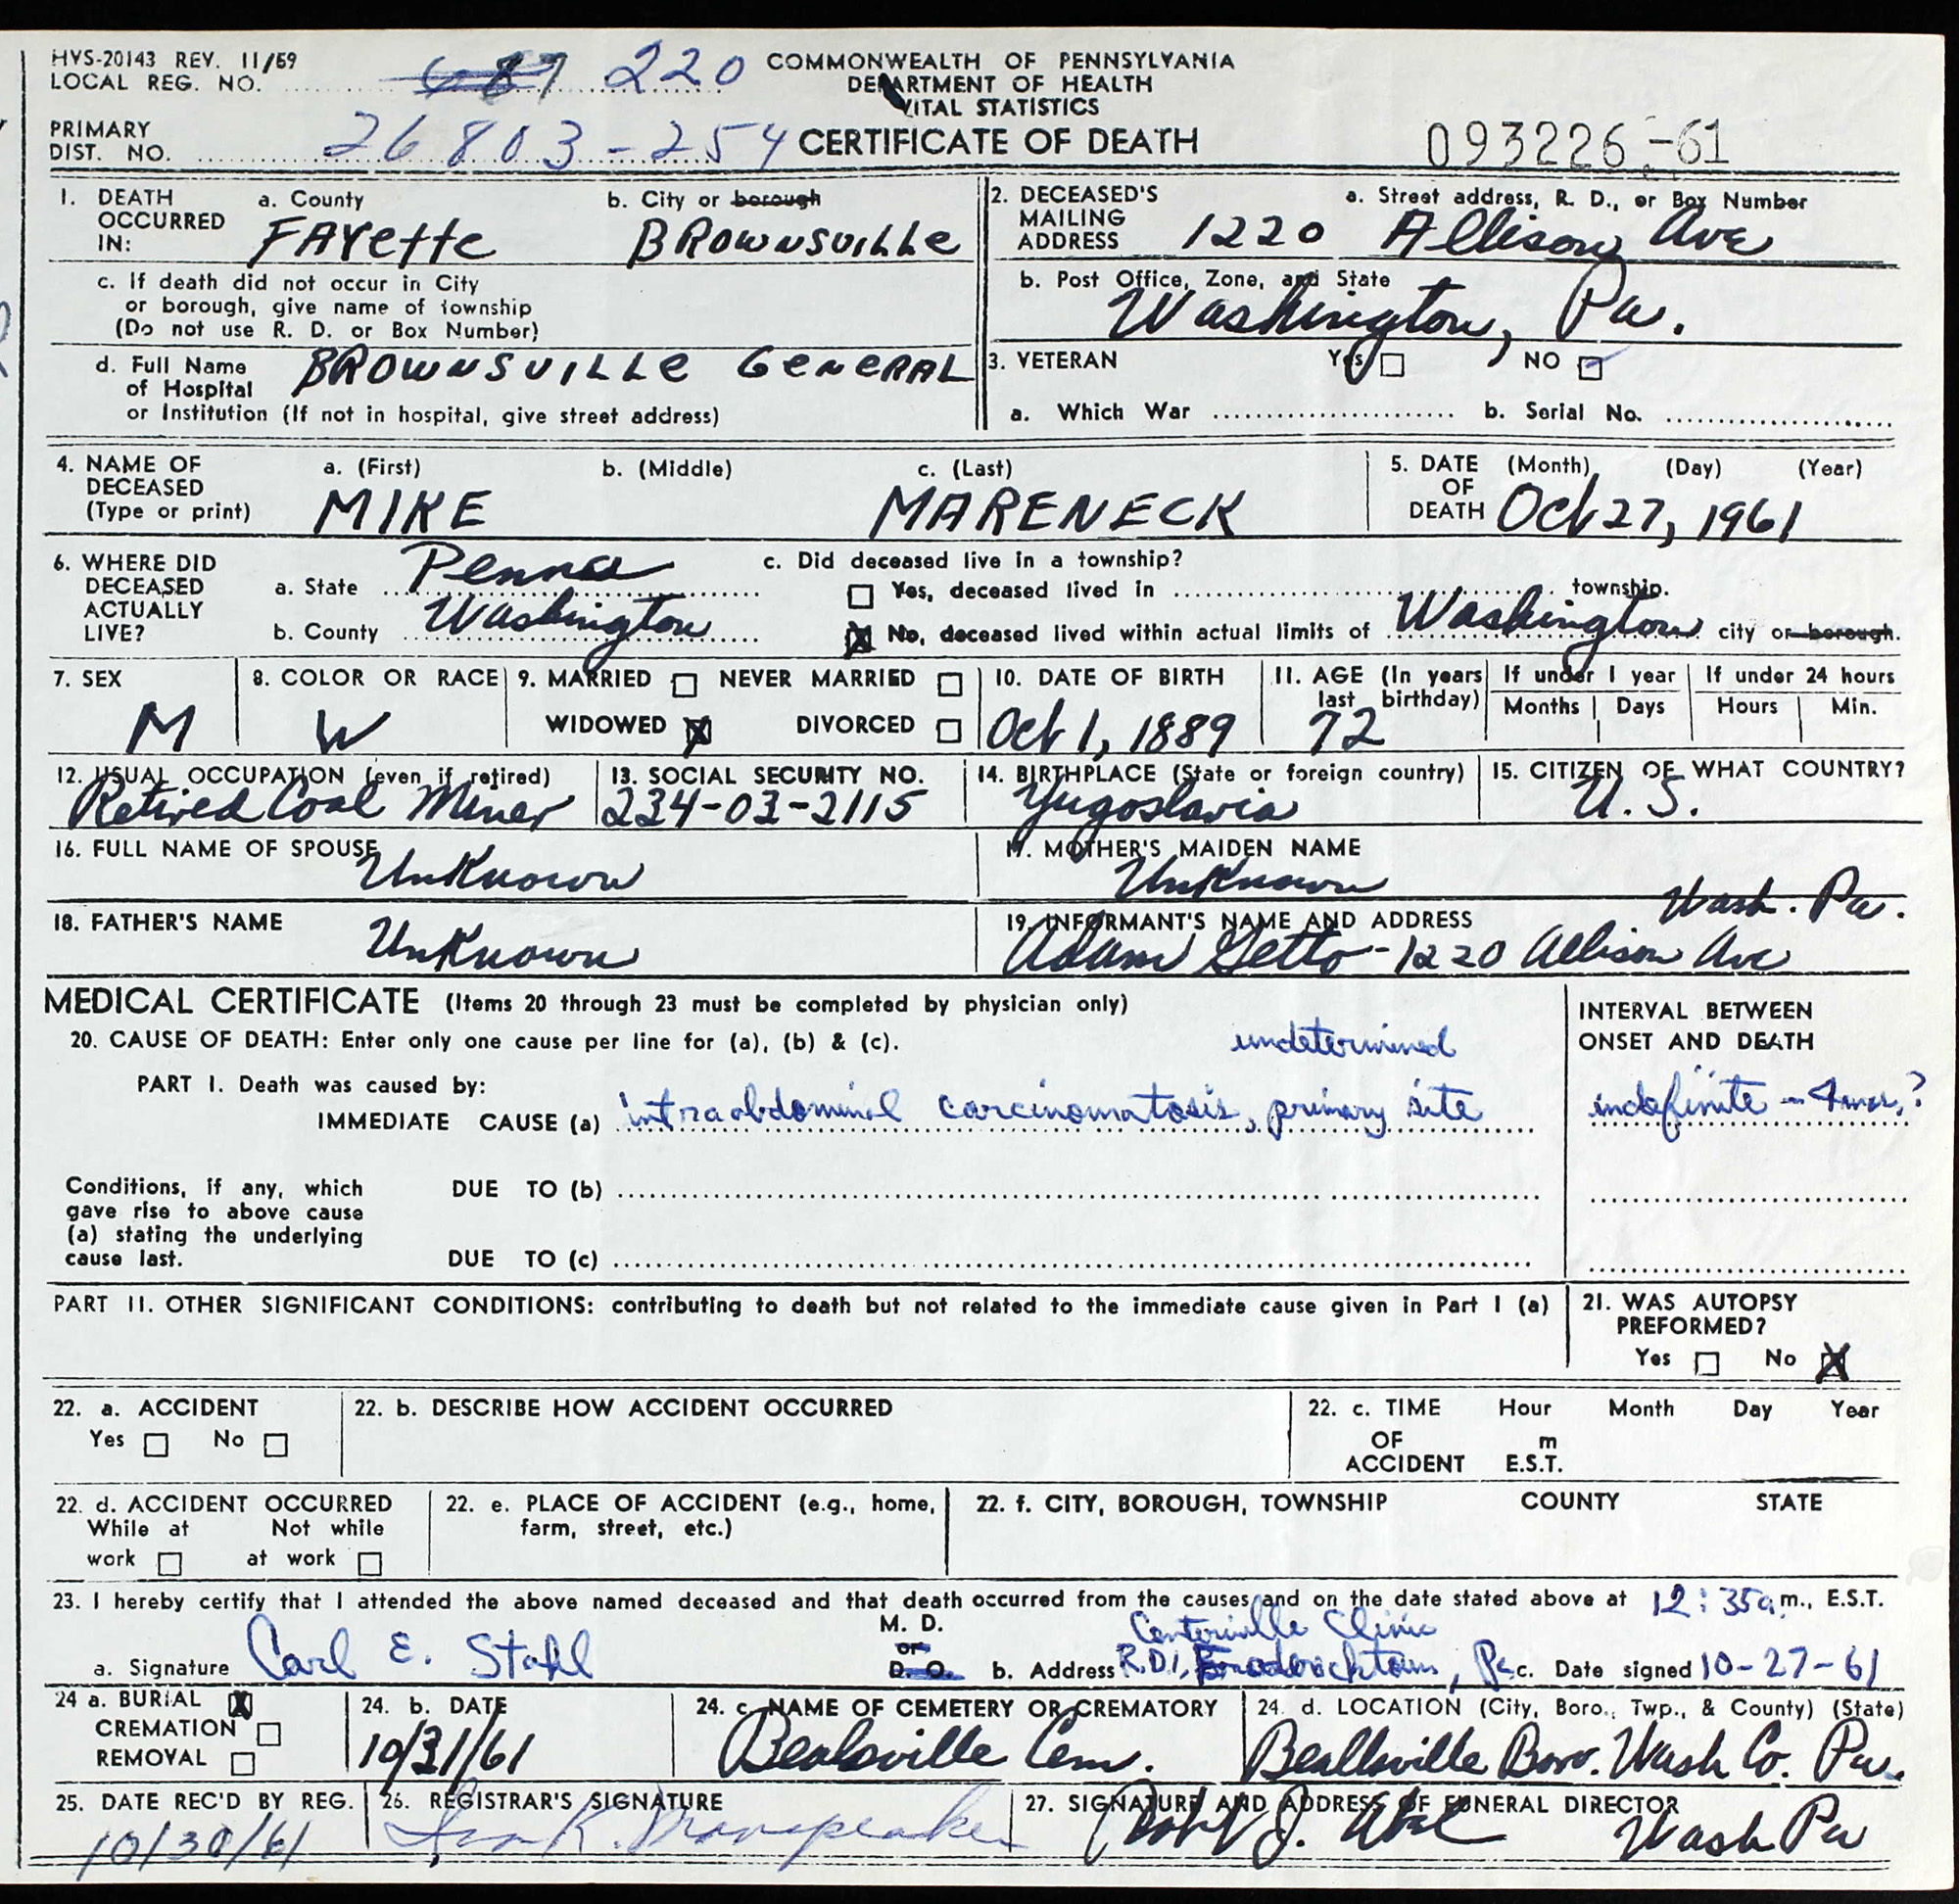 HVS-20143 REV. 11/59
LOCAL REG. NO. 220
COMMONWEALTH OF PENNSYLVANIA
DEPARTMENT OF HEALTH
VITAL STATISTICS
PRIMARY
DIST. NO. 26803-254
CERTIFICATE OF DEATH
093226-61
1. DEATH OCCURRED IN:
a. County
FAYette
b. City or borough
BROWNSVILLe
c. If death did not occur in City
or borough, give name of township
(Do not use R. D. or Box Number)
d. Full Name
of Hospital
or Institution (If not in hospital, give street address)
BROWNSVILLe GeNeRAL
2. DECEASED'S MAILING ADDRESS
a. Street address, R. D., or Box Number
1220 Allison Ave
b. Post Office, Zone, and State
Washington, Pa.
3. VETERAN Yes NO
a. Which War b. Serial No.
4. NAME OF DECEASED (Type or print)
a. (First) b. (Middle) c. (Last)
MIKE MARENECK
5. DATE OF DEATH (Month) (Day) (Year)
Oct 27, 1961
6. WHERE DID DECEASED ACTUALLY LIVE?
a. State Penna
b. County Washington
c. Did deceased live in a township?
Yes, deceased lived in township.
No, deceased lived within actual limits of Washington city or borough.
7. SEX
M
8. COLOR OR RACE
W
9. MARRIED NEVER MARRIED
WIDOWED X DIVORCED
10. DATE OF BIRTH
Oct 1, 1889
11. AGE (In years last birthday)
72
If under 1 year
Months Days
If under 24 hours
Hours Min.
12. USUAL OCCUPATION (even if retired)
Retired Coal Miner
13. SOCIAL SECURITY NO.
234-03-2115
14. BIRTHPLACE (State or foreign country)
Yugoslavia
15. CITIZEN OF WHAT COUNTRY?
U. S.
16. FULL NAME OF SPOUSE
UnKnown
17. MOTHER'S MAIDEN NAME
UnKnown
18. FATHER'S NAME
UnKnown
19. INFORMANT'S NAME AND ADDRESS
Wash. Pa.
Adam Getto - 1220 Allison Ave
MEDICAL CERTIFICATE (Items 20 through 23 must be completed by physician only)
20. CAUSE OF DEATH: Enter only one cause per line for (a), (b) & (c).
PART I. Death was caused by:
undetermined
IMMEDIATE CAUSE (a) intraabdominal carcinomatosis, primary site
INTERVAL BETWEEN
ONSET AND DEATH
indefinite - 4 mos.?
Conditions, if any, which
gave rise to above cause
(a) stating the underlying
cause last.
DUE TO (b)
DUE TO (c)
PART II. OTHER SIGNIFICANT CONDITIONS: contributing to death but not related to the immediate cause given in Part I (a)
21. WAS AUTOPSY
PREFORMED?
Yes No X
22. a. ACCIDENT
Yes No
22. b. DESCRIBE HOW ACCIDENT OCCURRED
22. c. TIME OF ACCIDENT
Hour Month Day Year
m
E.S.T.
22. d. ACCIDENT OCCURRED
While at work Not while at work
22. e. PLACE OF ACCIDENT (e.g., home,
farm, street, etc.)
22. f. CITY, BOROUGH, TOWNSHIP COUNTY STATE
23. I hereby certify that I attended the above named deceased and that death occurred from the causes and on the date stated above at 12:35 a.m., E.S.T.
a. Signature Carl E. Stahl
M. D.
or
D. O.
Centerville Clinic
b. Address R.D.1, Fredericktown, Pa.
c. Date signed 10-27-61
24 a. BURIAL X
CREMATION
REMOVAL
24. b. DATE
10/31/61
24. c. NAME OF CEMETERY OR CREMATORY
Beallsville Cem.
24. d. LOCATION (City, Boro., Twp., & County) (State)
Beallsville Boro. Wash Co. Pa.
25. DATE REC'D BY REG.
10/30/61
26. REGISTRAR'S SIGNATURE
27. SIGNATURE AND ADDRESS OF FUNERAL DIRECTOR
Wash Pa